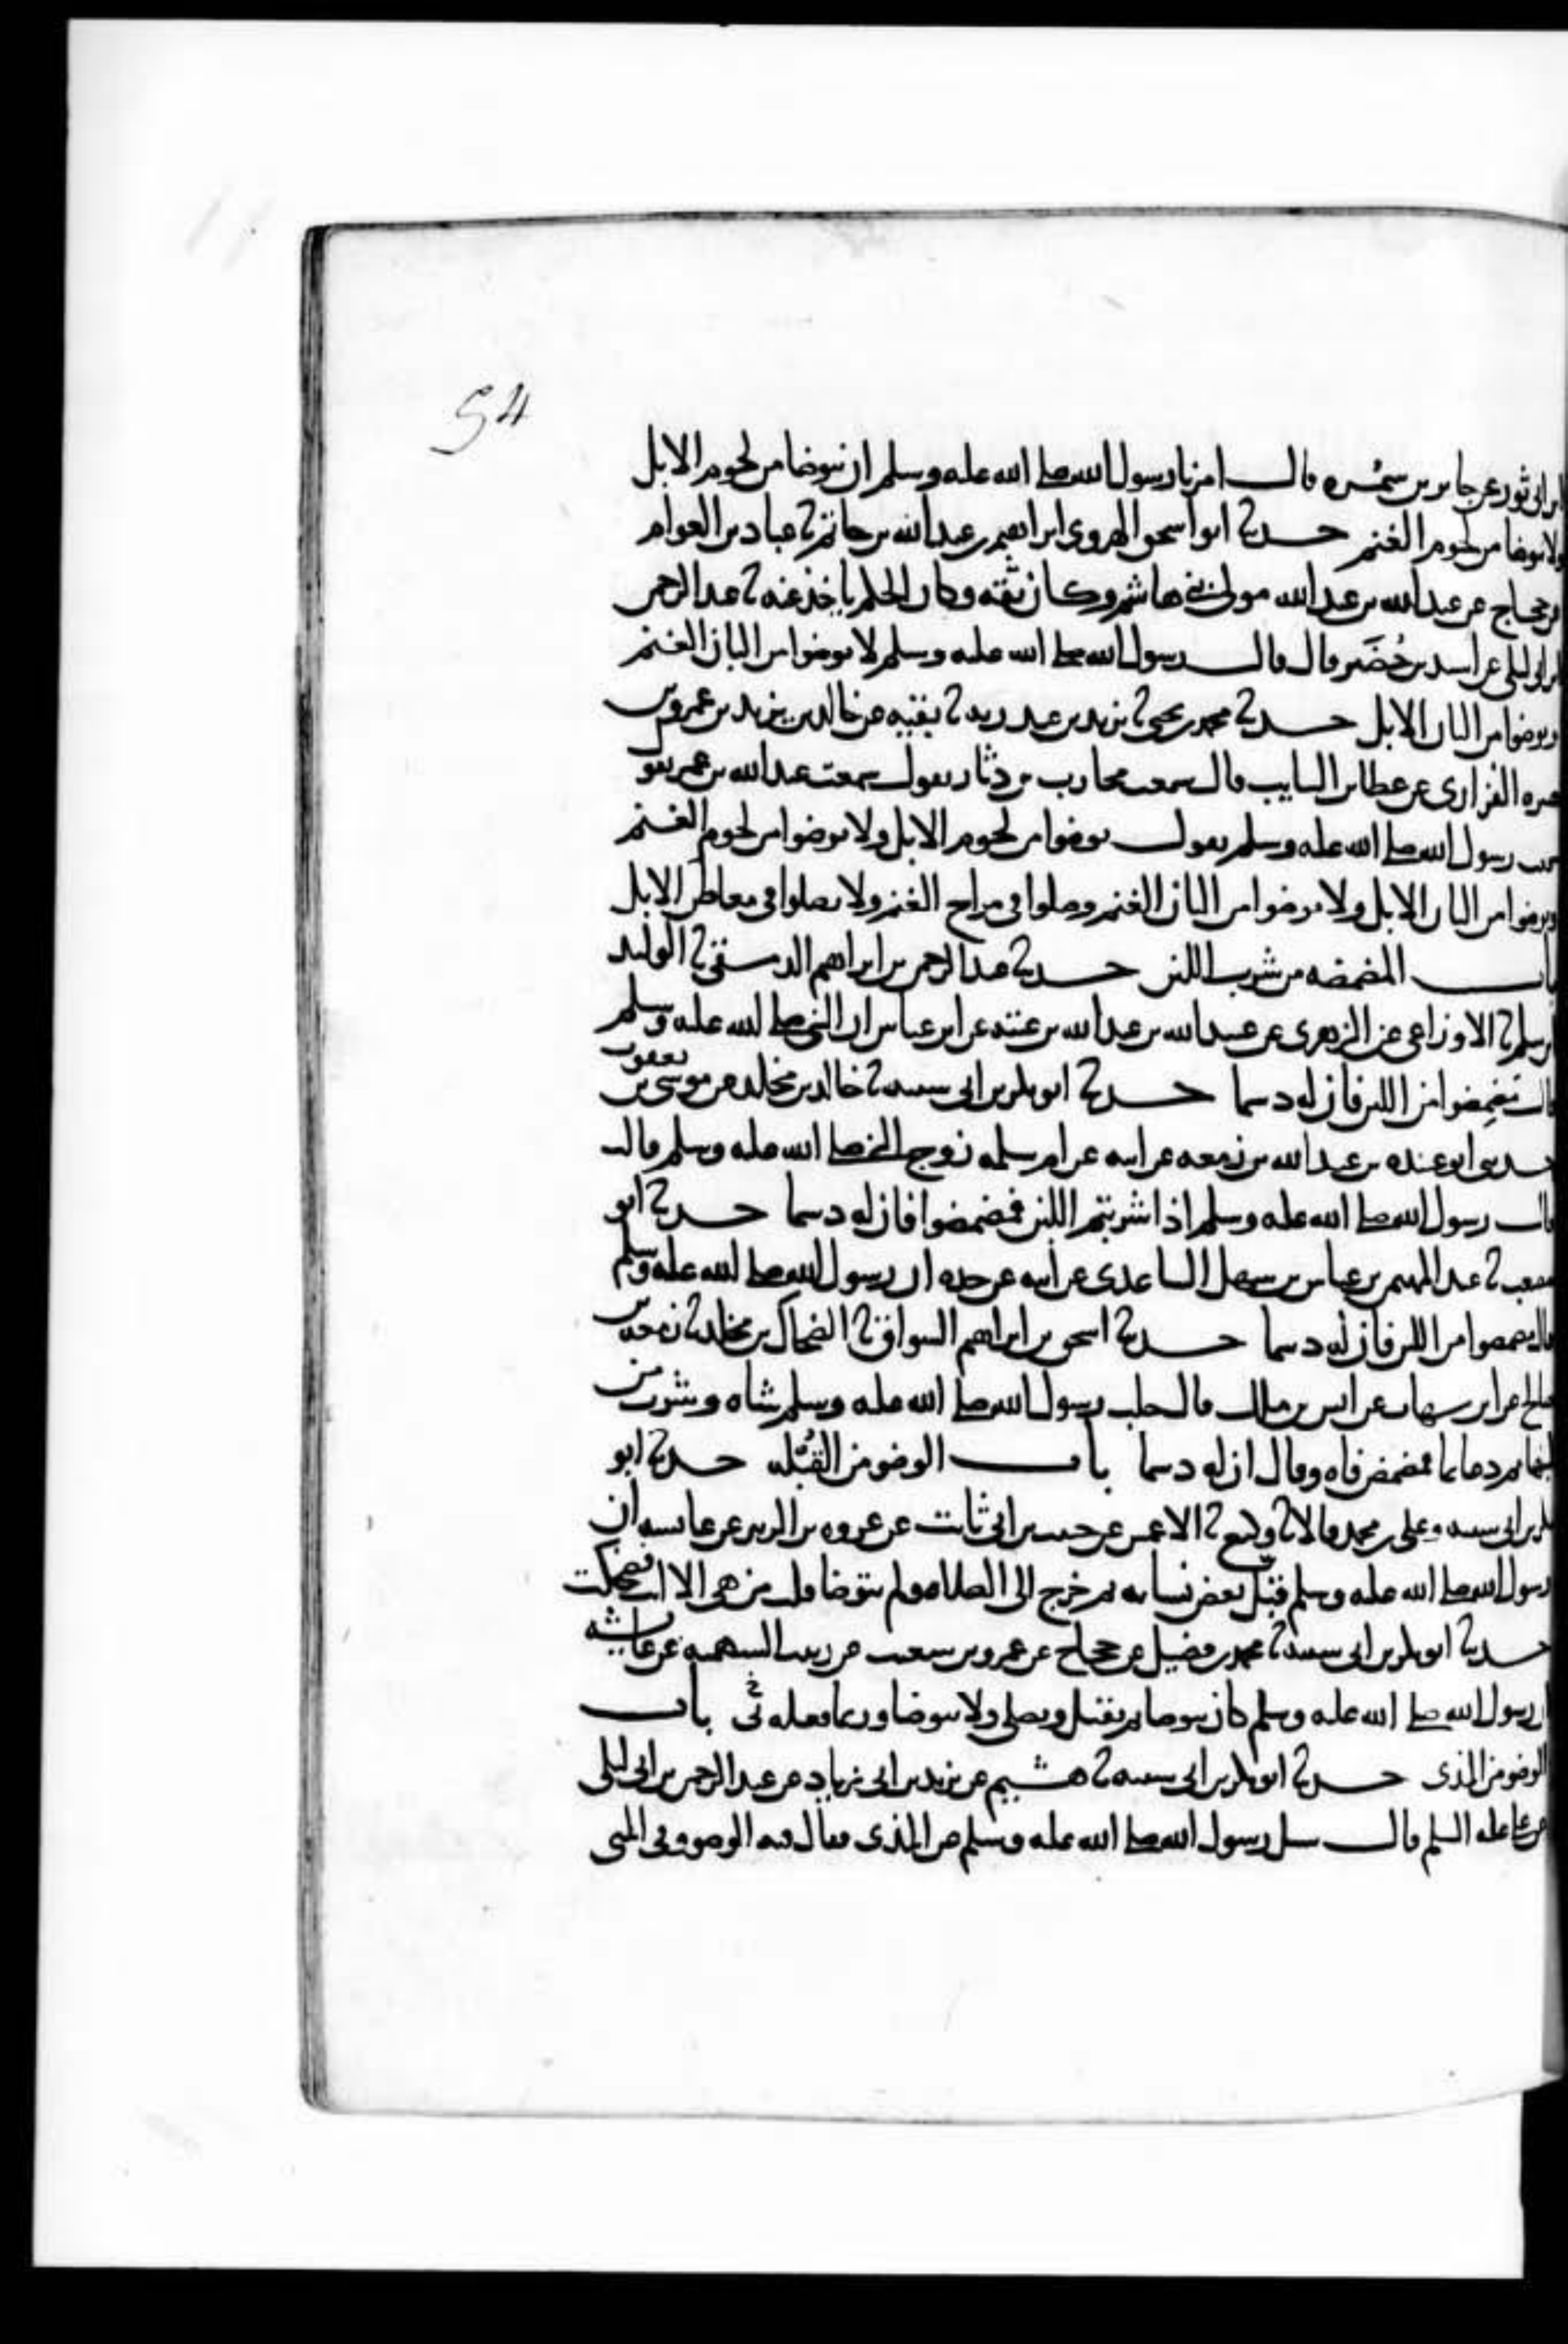 54
ابن ابي ثور عن جابر بن سمُره قال امرنا رسول الله صلى الله عليه وسلم ان نتوضا من لحوم الابل
ولا نتوضا من لحوم الغنم حدثنا ابو اسحق الهروي ابراهيم بن عبد الله بن حاتم ثنا عباد بن العوام
عن حجاج عن عبد الله بن عبد الله مولى بني هاشم وكان ثقه وكان الحكم ياخذ عنه ثنا عبد الرحمن
بن ابي ليلى عن اسيد بن حُضَير قال قال رسول الله صلى الله عليه وسلم لا توضوا من البان الغنم
وتوضوا من البان الابل حدثنا محمد بن يحيى ثنا يزيد بن عبد ربه ثنا بقيه عن خالد بن يزيد بن عمر بن
هبيره الفزاري عن عطا بن السايب قال سمعت محارب بن دثار يقول سمعت عبد الله بن عمر يقول
سمعت رسول الله صلى الله عليه وسلم يقول توضوا من لحوم الابل ولا توضوا من لحوم الغنم
وتوضوا من البان الابل ولا توضوا من البان الغنم وصلوا في مراح الغنم ولا تصلوا في معاطن الابل
باب المضمضه من شرب اللبن حدثنا عبد الرحمن بن ابراهيم الدمشقي ثنا الوليد
بن مسلم ثنا الاوزاعي عن الزهري عن عبيد الله بن عبد الله بن عتبه عن ابن عباس ان النبي صلى الله عليه وسلم
قال مضمضوا من اللبن فان له دسما حدثنا ابو بكر بن ابي شيبه ثنا خالد بن مخلد عن موسى بن يعقوب
حدثني ابو عبيده بن عبد الله بن زمعه عن ابيه عن ام سلمه زوج النبي صلى الله عليه وسلم قالت
قال رسول الله صلى الله عليه وسلم اذا شربتم اللبن فمضمضوا فان له دسما حدثنا ابو
مصعب ثنا عبد المهيمن بن عباس بن سهل الساعدي عن ابيه عن جده ان رسول الله صلى الله عليه وسلم
قال مضمضوا من اللبن فان له دسما حدثنا اسحق بن ابراهيم السواق ثنا الضحاك بن مخلد ثنا زمعه بن
صالح عن ابن شهاب عن انس بن ملك قال حلب رسول الله صلى الله عليه وسلم شاه وشرب من
لبنها ثم دعا بما فمضمض فاه وقال ان له دسما باب الوضو من القُبْله حدثنا ابو
بكر بن ابي شيبه وعلي بن محمد قالا ثنا وكيع ثنا الاعمش عن حبيب بن ابي ثابت عن عروه بن الزبير عن عايشه ان
رسول الله صلى الله عليه وسلم قبّل بعض نسايه ثم خرج الى الصلاه ولم يتوضا قلت من هي الا انت فضحكت
حدثنا ابو بكر بن ابي شيبه ثنا محمد بن فضيل عن حجاج عن عمرو بن شعيب عن زينب السهميه عن عايشه
ان رسول الله صلى الله عليه وسلم كان يتوضا ثم يقبل ويصلي ولا يتوضا وربما فعله بي باب
الوضو من المذي حدثنا ابو بكر بن ابي شيبه ثنا هشيم عن يزيد بن ابي زياد عن عبد الرحمن بن ابي ليلى
عن علي عليه السلم قال سل رسول الله صلى الله عليه وسلم عن المذي فقال فيه الوضو وفي المني